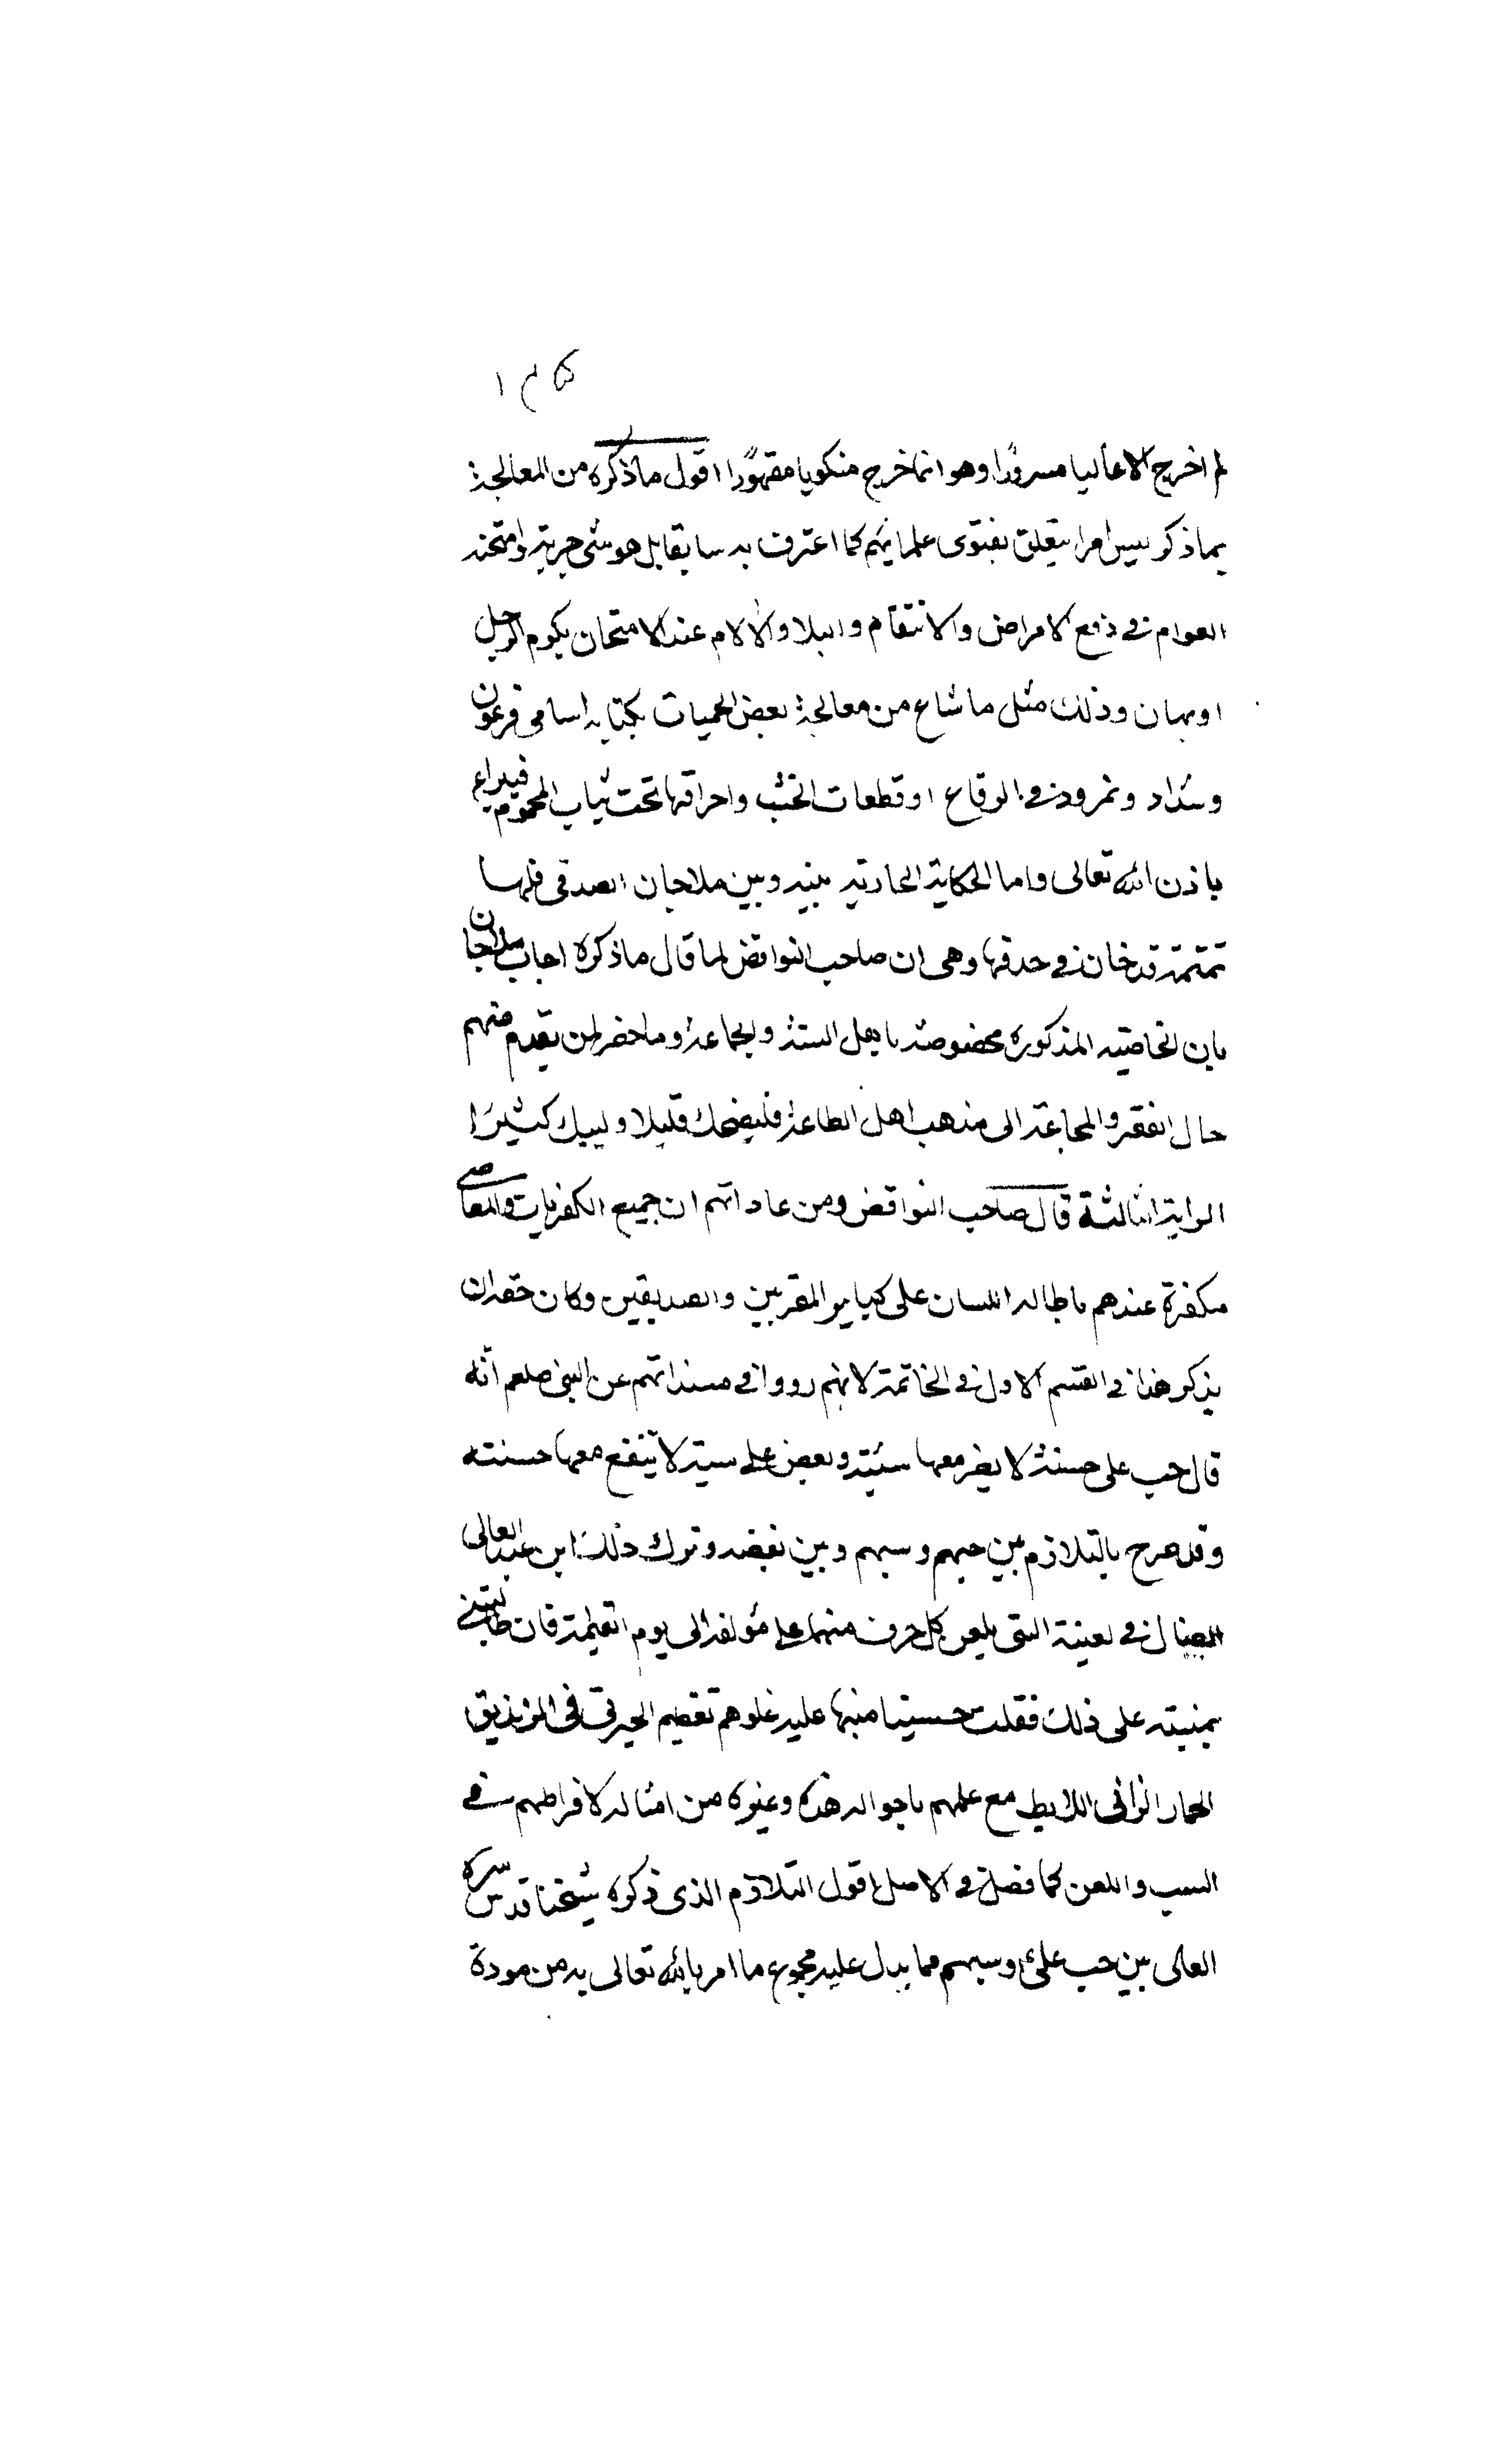 لم اخرج الا غاليا مسرورًا وهو انما خرج منكوبا مقهورًا اقول ما ذكره من المعالجة
بما ذكر ليس امرا يتعلق بفتوى علمائهم كما اعترف به سابقا بل هو شئ جربته وامتحنه
العوام فى دفع الامراض والانتقام والبلا والالام عند الامتحان يكرم الرجل
او يهان وذلك مثل ما شاع من معالجة بعض الحميات بكتابه اسامى فرعون
وشداد ونمرود فى الرقاع او قطعات الخشب واحراقها تحت ثياب المحموم فيبراء
باذن الله تعالى واما الحكاية الجارية بينه وبين ملاجان الصدقى فلها
تتمة قد خان فى حذفها وهى ان صاحب النواقض لما قال ما ذكره اجاب ملاجان
بان الخاصية المذكوره مخصوصة باهل السنة والجماعة وما حضر لمن تقدم منهم
حال الفقر والمجاعة الى مذهب اهل الطاعة فليضحك قليلا وليبك كثيرًا
الراية الثالثة قال صاحب النواقض ومن عاداتهم ان جميع الكفريات والمعاصى
مكفرة عندهم باطالة اللسان على كبار المقربين والصديقين وكان حقه ان
يذكر هذا فى القسم الاول فى الخاتمة لانهم رووا فى مسنداتهم عن النبى صلعم انه
قال حب على حسنة لا يضر معها سيئة وبغض على سيئة لا ينفع معها حسنته
وقد صرح بالتلازم بين حبهم وسبهم وبين بغضه وترك ذلك ابن عبد العالى
الضال فى لعينة التى يلعن كل حرف منها على مؤلفه الى يوم القيمة فان
على ذلك فقلت حسبنا منبها عليه غلوهم تعظيم الحيرتى الزنديق
الحمار الزانى اللايط مع علمهم باحواله هذه وغيره من امثاله لافراطهم فى
السب واللعن كما فصل فى الاصل اقول التلازم الذى ذكره شيخنا قدس سره
العالى بين حب على وسبهم مما يدل عليه مجموع ما امر بالله تعالى به من مودة